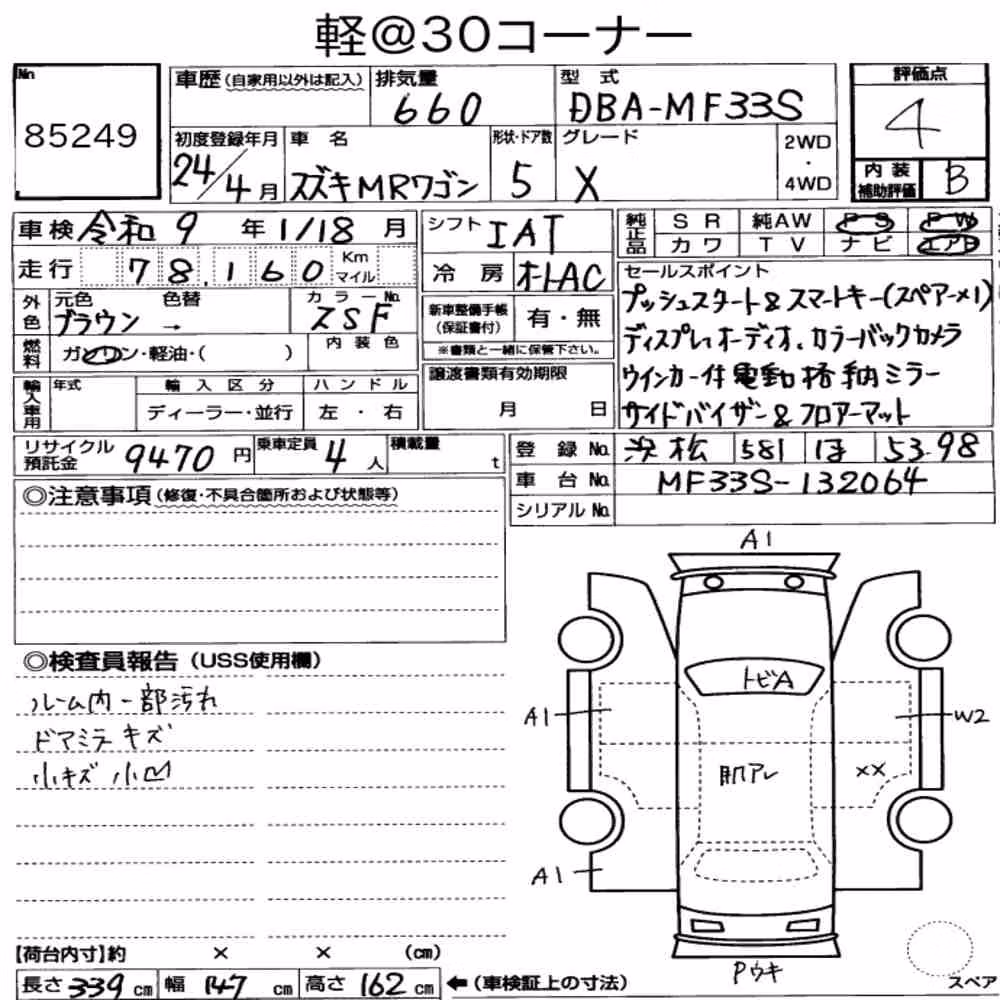 軽@30コーナー
No
85249
車歴(自家用以外は記入)
排気量
660
型 式
DBA-MF33S
評価点
4
内装補助評価 B
初度登録年月
24/4月
車 名
スズキMRワゴン
形状・ドア数
5
グレード
X
2WD
・
4WD
車検 令和9 年 1/18 月
走行 78,160 Km マイル
シフト IAT
冷 房 オートAC
純正品 SR 純AW PS PW
カワ TV ナビ エアB
外色 元色 色替
ブラウン →
カラーNo.
ZSF
燃料 ガソリン・軽油・( )
内装色
新車整備手帳(保証書付) 有・無
※書類と一緒に保管下さい。
セールスポイント
プッシュスタート&スマートキー(スペアー×1)
ディスプレイオーディオ、カラーバックカメラ
ウインカー付電動格納ミラー
サイドバイザー&フロアーマット
輸入車用 年式
輸入区分
ディーラー・並行
ハンドル
左・右
譲渡書類有効期限
月 日
リサイクル預託金 9470 円
乗車定員 4 人
積載量 t
登録No. 浜松 581 ほ 53-98
車台No. MF33S-132064
シリアルNo.
◎注意事項(修復・不具合箇所および状態等)
◎検査員報告(USS使用欄)
ルーム内一部汚れ
ドアミラーキズ
小キズ 小凹
A1
トビA
A1
W2
肌アレ
××
A1
Pウキ
スペア
【荷台内寸】約 × × (cm)
長さ 339 cm 幅 147 cm 高さ 162 cm ←(車検証上の寸法)